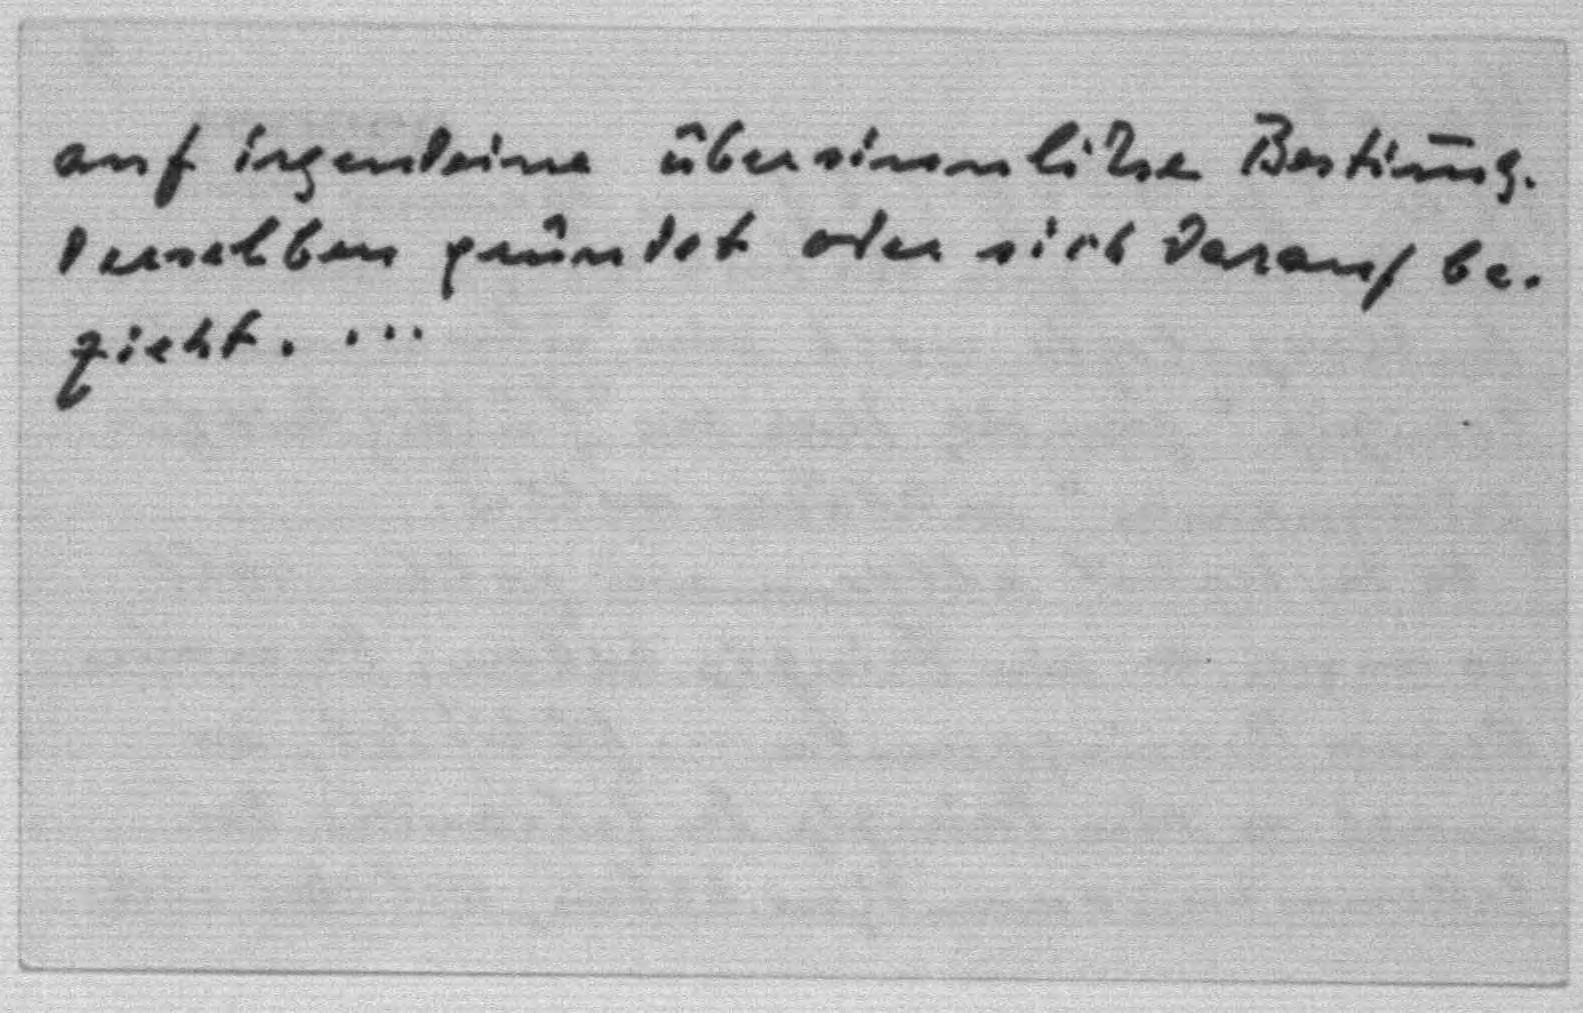 auf irgendeine übersinnliche Bestim̄g.
derselben gründet oder sich darauf be-
zieht. ...